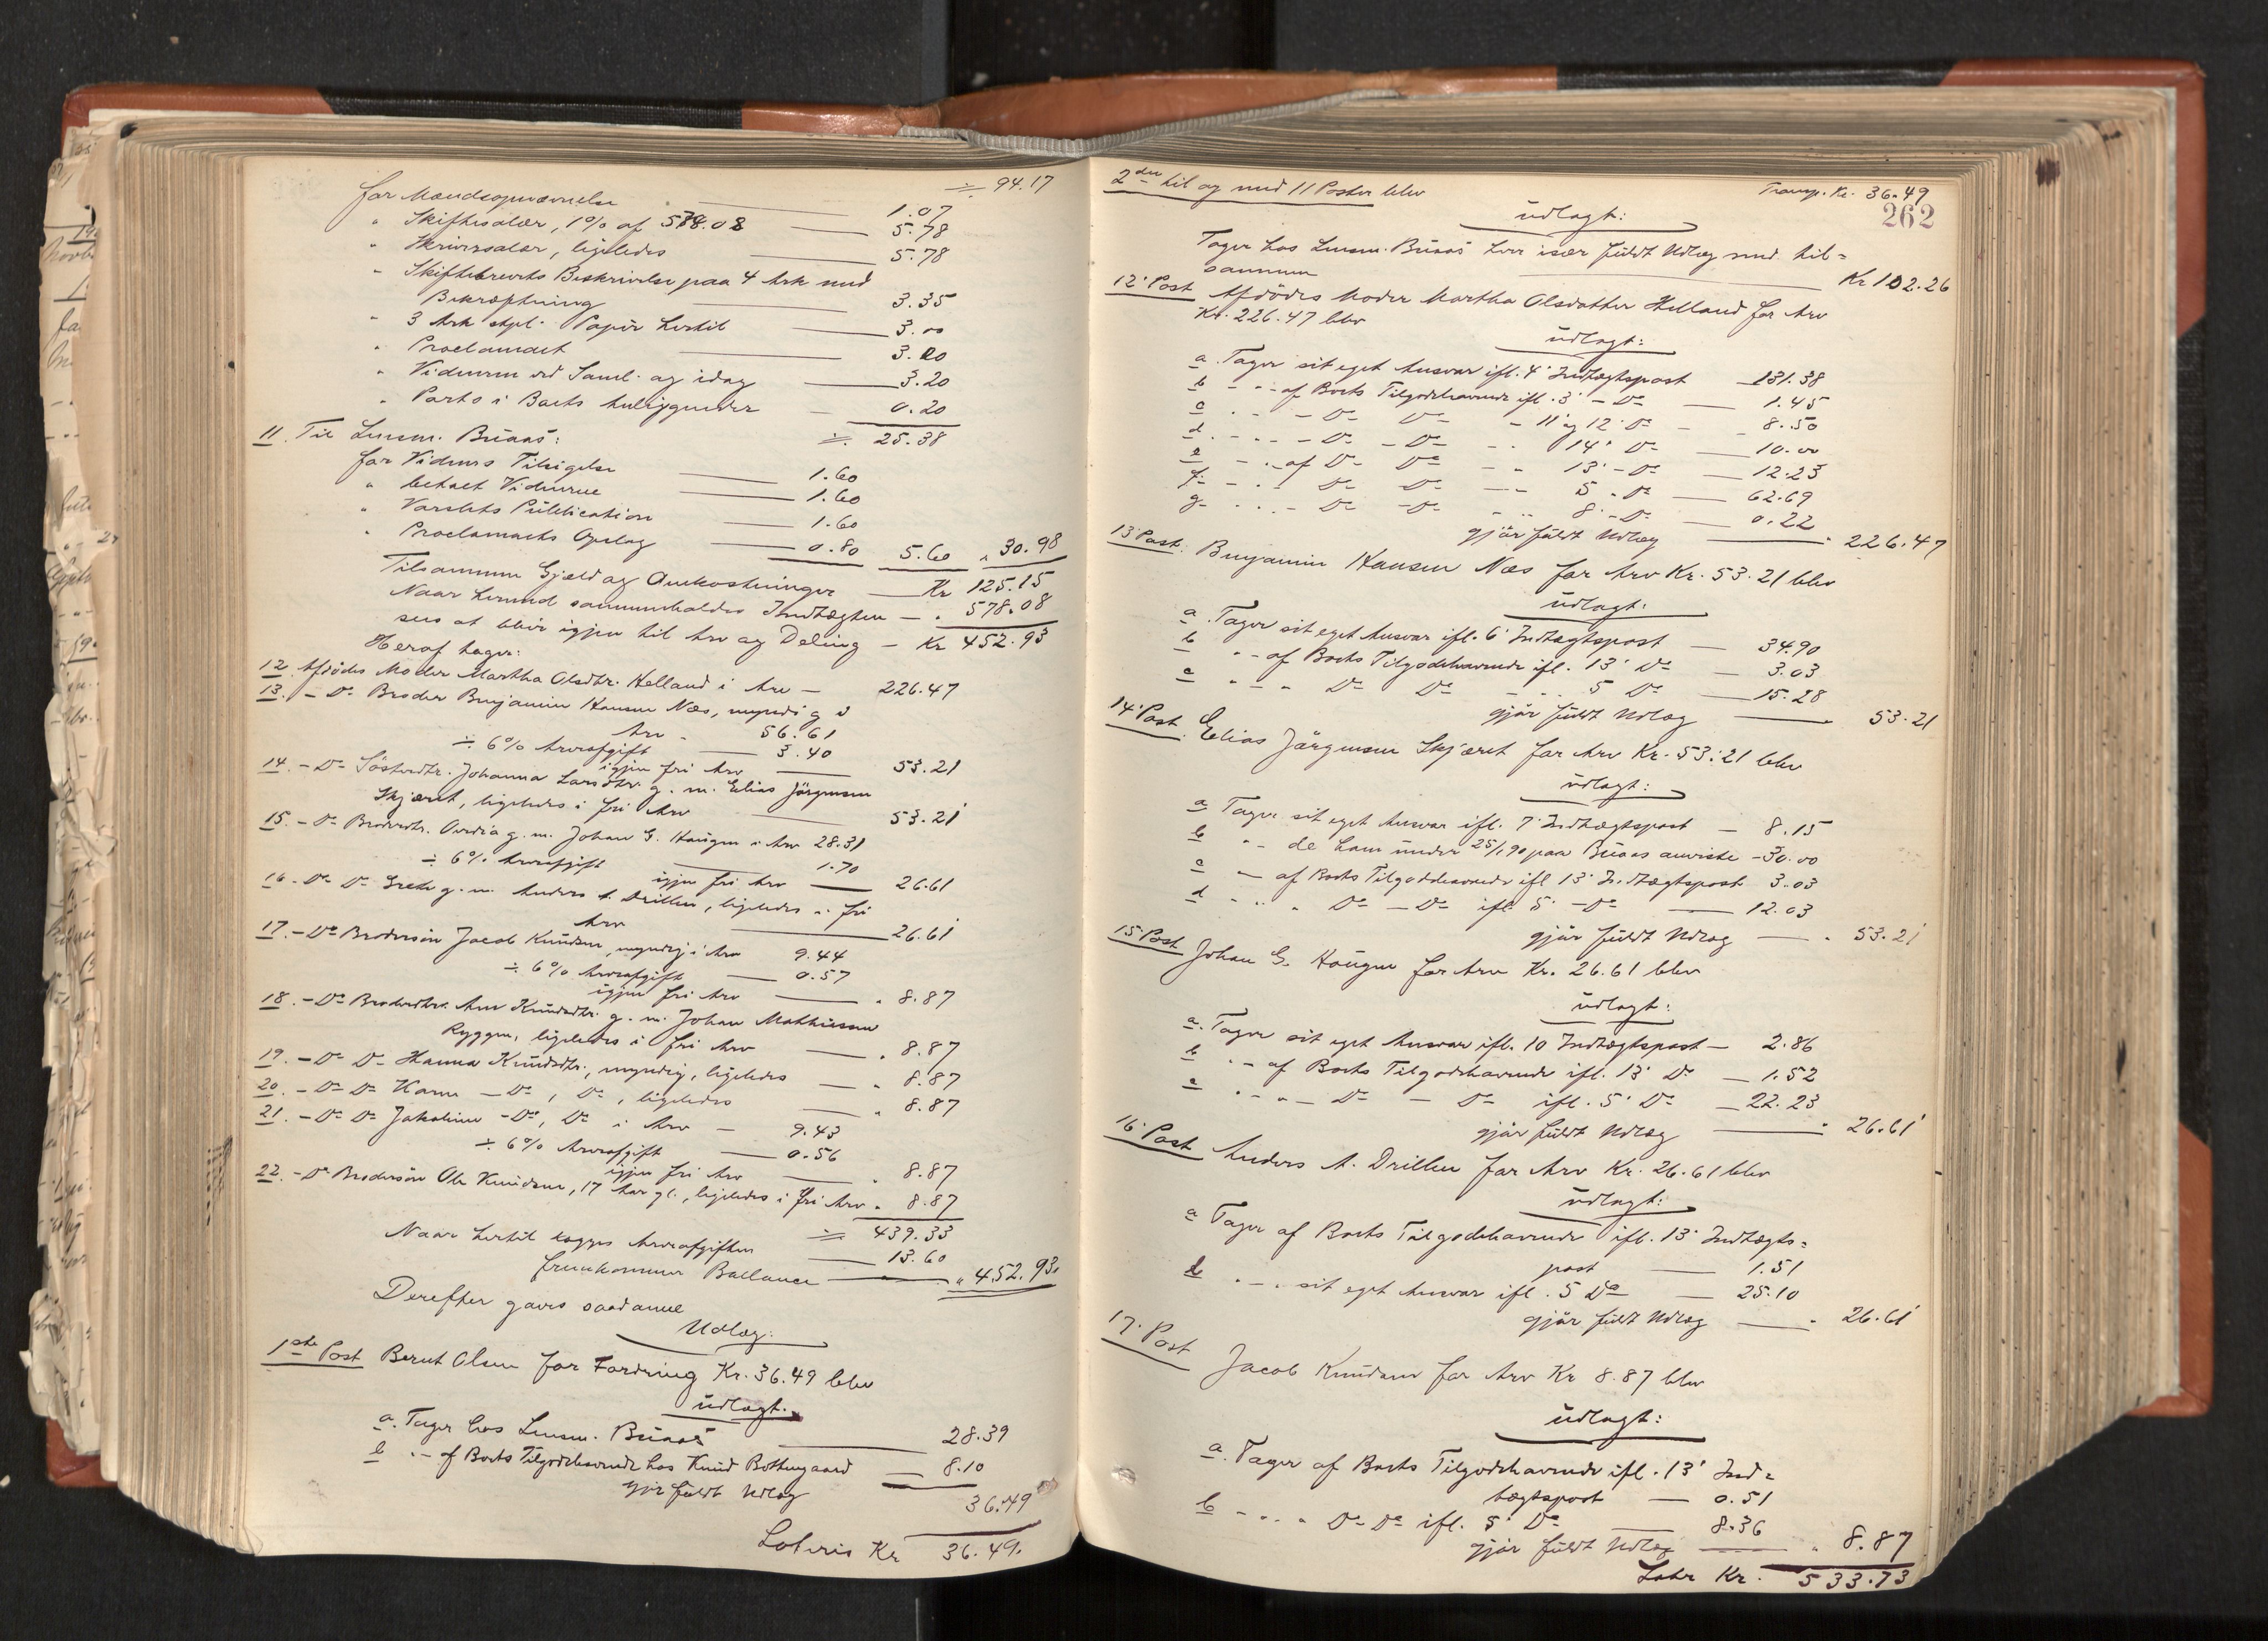 ÷ 94.17
for Mændsopnævnelse 1.07
" Skiftesalær, 1% af 578.08 5.78
" Skriversalær, ligeledes 5.78
" Skiftebrevets Beskrivelse paa 4 Ark med
Bekræftning 3.35
" 3 Ark stpl. Papir hertil 3.00
" Proclamaet 3.20
" Vidnerne ved Saml. og idag 3.20
" Porto i Boets Anliggender 0.20
÷ 25.38
11. Til Lensm. Buaas:
for Vidners Tilsigelse 1.60
" betalt Vidnerne 1.60
" Varslets Publication 1.60
" Proclamaets Opslag 0.80 5.60 " 30.98
Tilsammen Gjæld og Omkostninger Kr 125.15
Naar hermed sammenholdes Indtægten — " 578.08
sees at blive igjen til Arv og Deling — Kr 452.93
Heraf tager:
12. Afdødes Moder Martha Olsdtr. Helland i Arv — 226.47
13. – Do Broder Benjamin Hansen Næs, myndig i
Arv – 56.61
÷ 6% Arveafgift 3.40
igjen fri Arv 53.21
14. – Do Søsterdtr. Johanna Larsdtr. g. m. Elias Jørgensen
Skjæret, ligeledes i fri Arv 53.21
15. – Do Broderdtr. Ovedia g. m. Johan G. Haugen i Arv 28.31
÷ 6% Arveafgift 1.70
igjen fri Arv 26.61
16. Do Do Grethe g. m. Anders A. Drillen, ligeledes i fri
Arv 26.61
17. – Do Brodersøn Jacob Knudsen, myndig i Arv 9.44
÷ 6% Arveafgift 0.57
igjen fri Arv " 8.87
18. – Do Broderdtr. Ane Knudsdtr. g. m. Johan Mathiesen
Ryggen, ligeledes i fri Arv " 8.87
19. – Do Do Hanna Knudsdtr., myndig, ligeledes " 8.87
20. – Do Do Karen – Do, Do, ligeledes " 8.87
21. – Do Do Jakobine – Do, Do i Arv – 9.43
÷ 6% Arveafgift 0.56
igjen fri Arv " 8.87
22. – Do Brodersøn Ole Knudsen, 17 Aar gl., ligeledes i fri Arv " 8.87
÷ 439.33
Naar hertil lægges Arveafgiften 13.60
fremkommer Ballance " 452.93.
Derefter gaves saadanne
Udlæg:
1ste Post Bernt Olsen for Fordring Kr. 36.49 blev
udlagt:
a. Tager hos Lensm. Buaas 28.39
b " – af Boets Tilgodehavende hos Knud Bothengaard 8.10
gjør fuldt Udlæg 36.49
Lateris Kr 36.49.
2den til og med 11 Poster blev Transp. Kr. 36.49
262
udlagt:
Tager hos Lensm. Buaas hver især fuldt Udlæg med til-
sammen Kr 102.26
12' Post Afdødes Moder Martha Olsdatter Helland for Arv
Kr. 226.47 blev
udlagt:
a. Tager sit eget Ansvar ifl. 4' Indtægtspost 131.38
b – " – af Boets Tilgodehavende ifl. 3' – Do 1.45
c " " – Do Do – 11 og 12' Do – 8.50
d. " – " – Do – Do " 14' Do 10.00
e – " – af Do Do – " 13' – Do 12.23
f. – " – Do Do – " 5 " Do 62.69
g. – " – Do – Do – " 8' – Do 0.22
gjør fuldt Udlæg " 226.47
13' Post. Benjamin Hansen Næs for Arv Kr. 53.21 blev
udlagt:
a. Tager sit eget Ansvar ifl. 6' Indtægtspost 34.90
b " – af Boets Tilgodehavende ifl. 13' Do 3.03
c " " " Do Do – " 5 Do 15.28
gjør fuldt Udlæg 53.21
14' Post. Elias Jørgensen Skjæret for Arv Kr. 53.21 blev
udlagt:
a Tager sit eget Ansvar ifl. 7' Indtægtspost — 8.15
b " – de ham under 25/1 90 paa Buaas anviste – 30.00
c " – af Boets Tilgodehavende ifl 13' Indtægtspost 3.03
d " " " Do – Do ifl. 5' – Do 12.03
gjør fuldt Udlæg " 53.21
15' Post Johan G. Haugen for Arv Kr. 26.61 blev
udlagt:
a. Tager sit eget Ansvar ifl. 10 Indtægtspost — 2.86
b " – af Boets Tilgodehavende ifl. 13' Do — 1.52
c " " – Do – Do ifl. 5' Do — 22.23
gjør fuldt Udlæg " 26.61
16' Post Anders A. Drillen for Arv Kr. 26.61 blev
udlagt:
a Tager af Boets Tilgodehavende ifl. 13' Indtægts-
post 1.51
b " – " sit eget Ansvar ifl. 5 Do 25.10
gjør fuldt Udlæg " 26.61
17. Post
Jacob Knudsen for Arv Kr 8.87 blev
udlagt:
a. Tager af Boets Tilgodehavende ifl. 13' Ind-
tægtspost 0.51
b – " " Do Do ifl. 5' Do 8.36
gjør fuldt Udlæg " 8.87
Latr Kr. 533.73